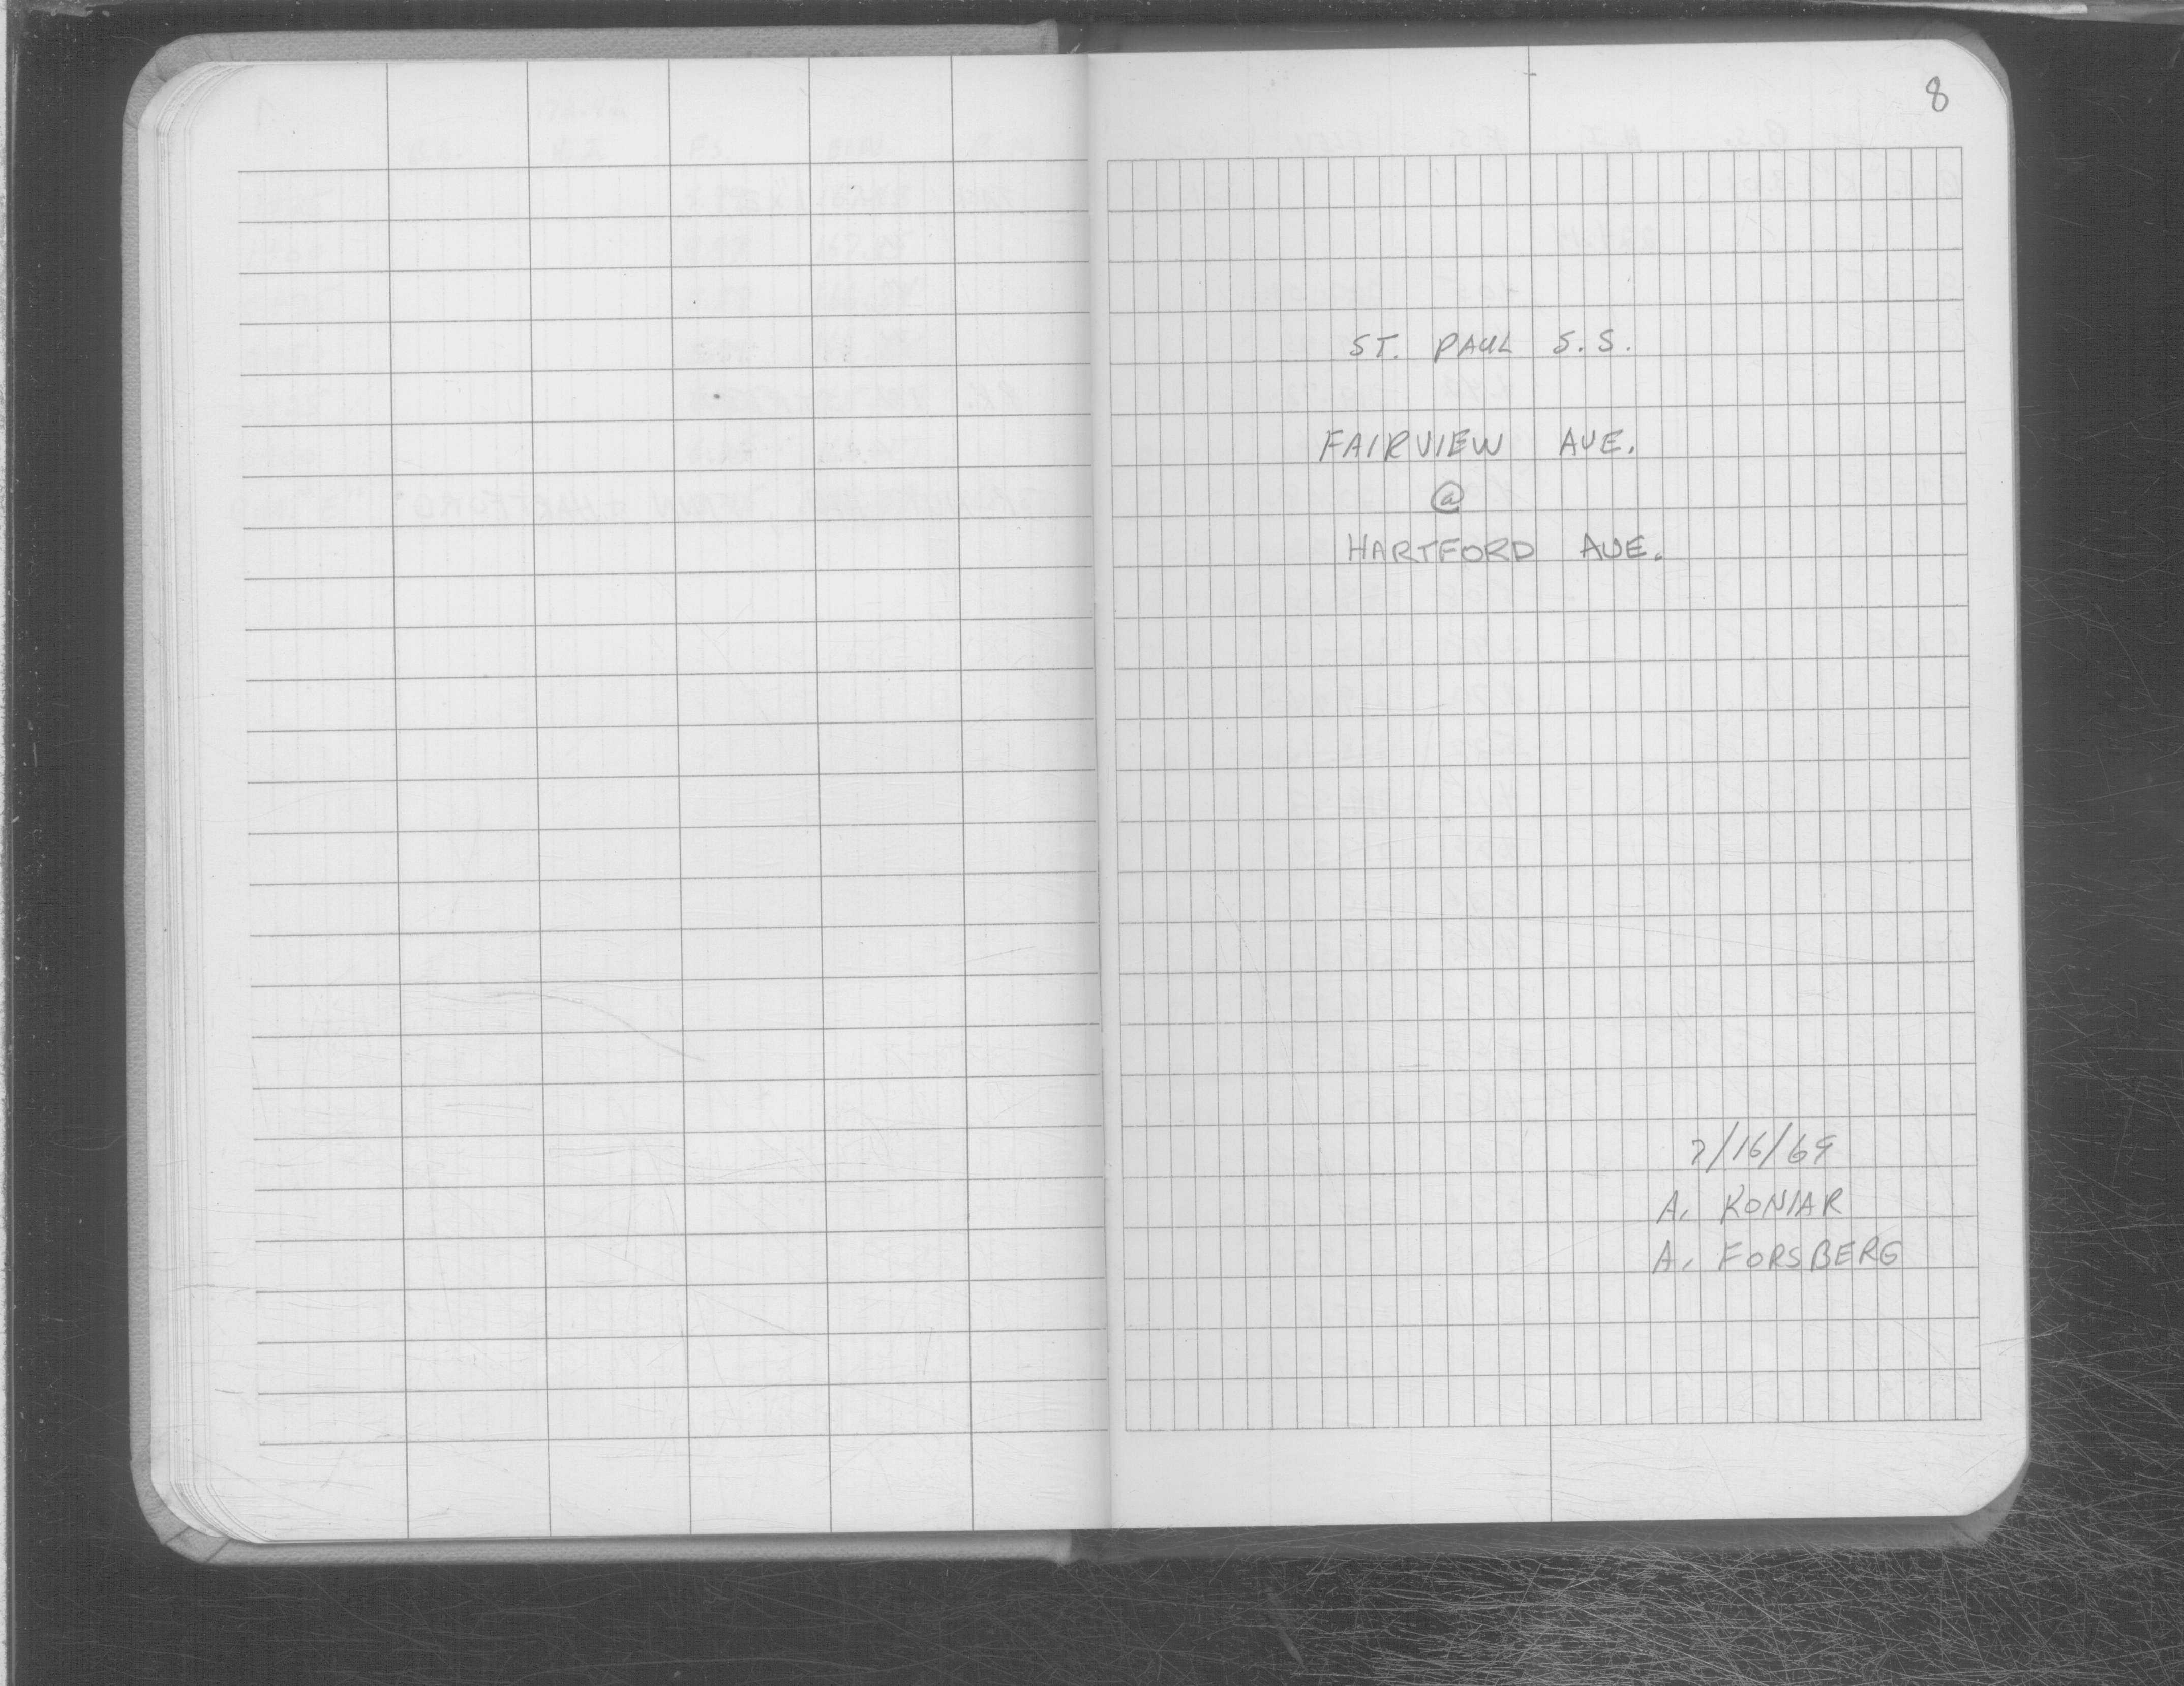 8
ST. PAUL S.S.
FAIRVIEW AVE.
@
HARTFORD AVE.
7/16/69
A. KONIAR
A. FORSBERG